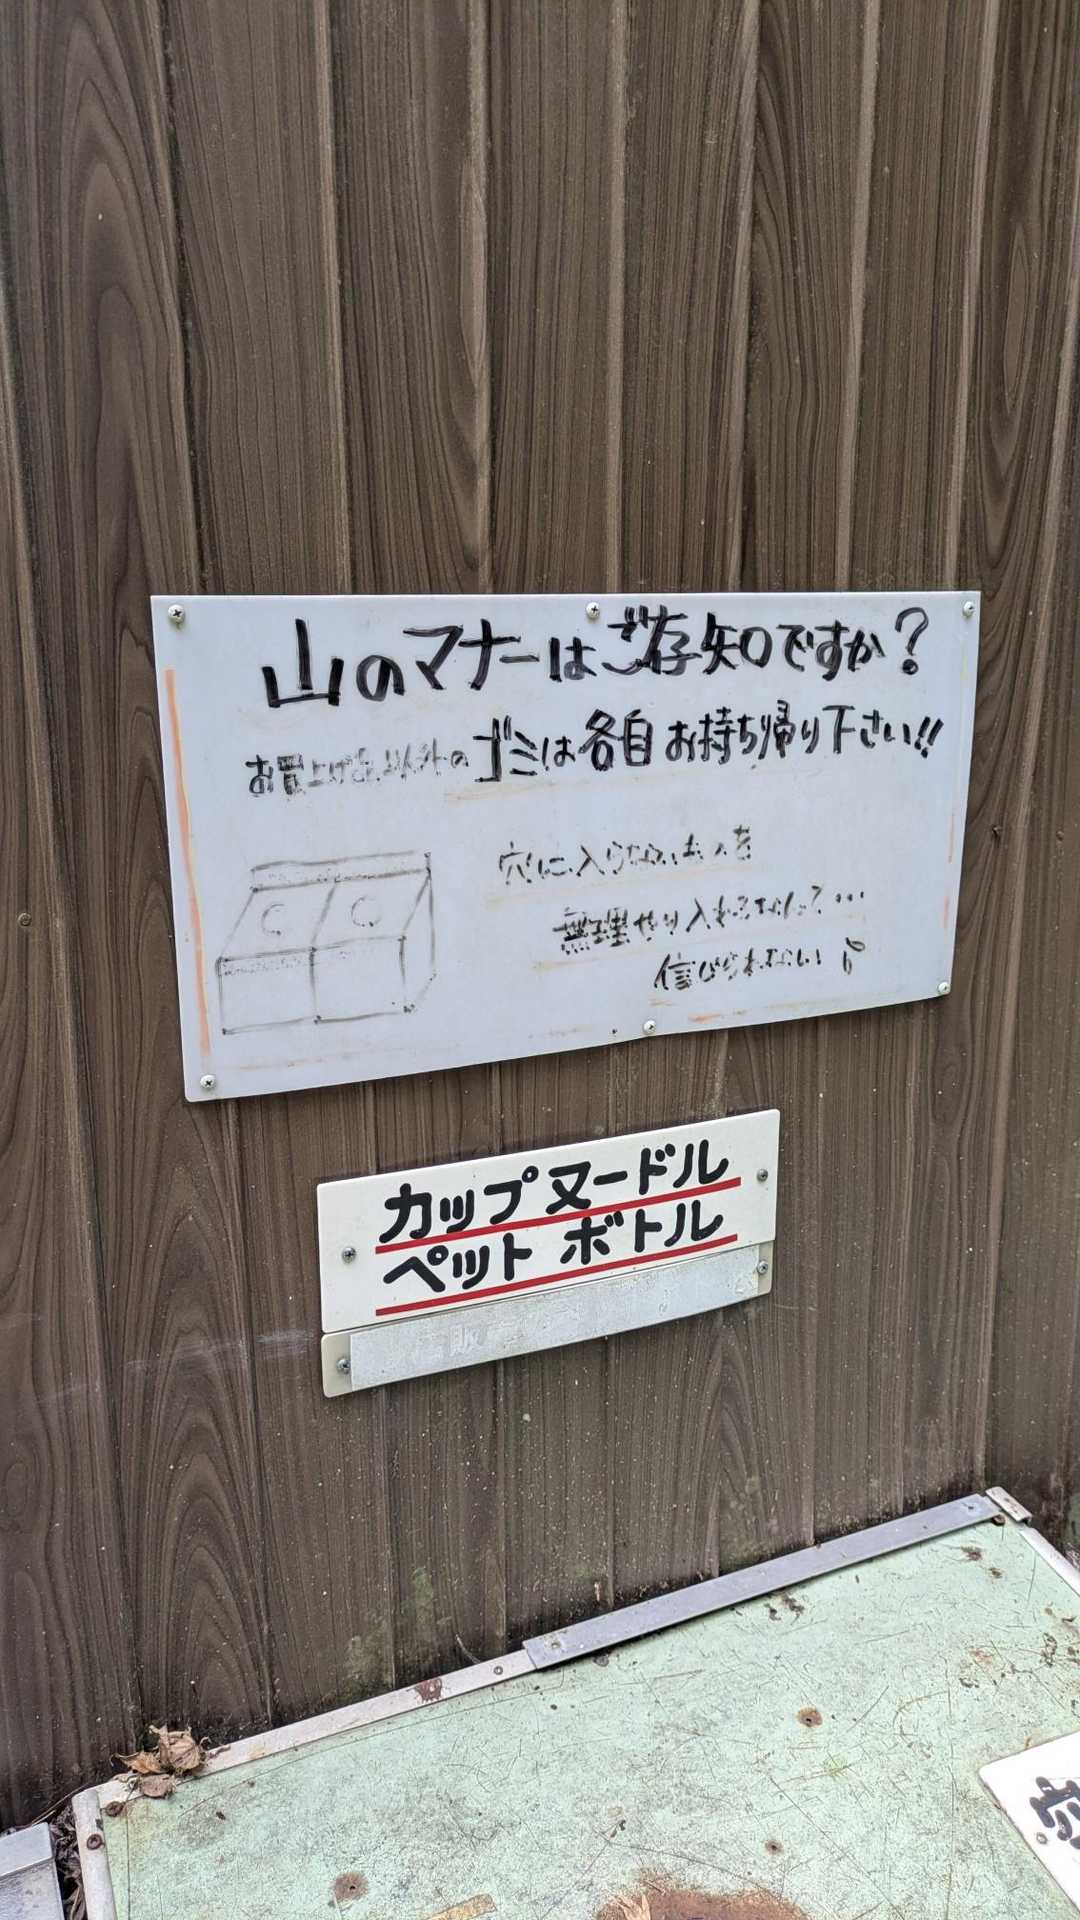 山のマナーはご存知ですか?
お買上げ品以外のゴミは各自お持ち帰り下さい!!
穴に入らないものを
無理やり入れるなんて…
信じられない
カップヌードル
ペットボトル